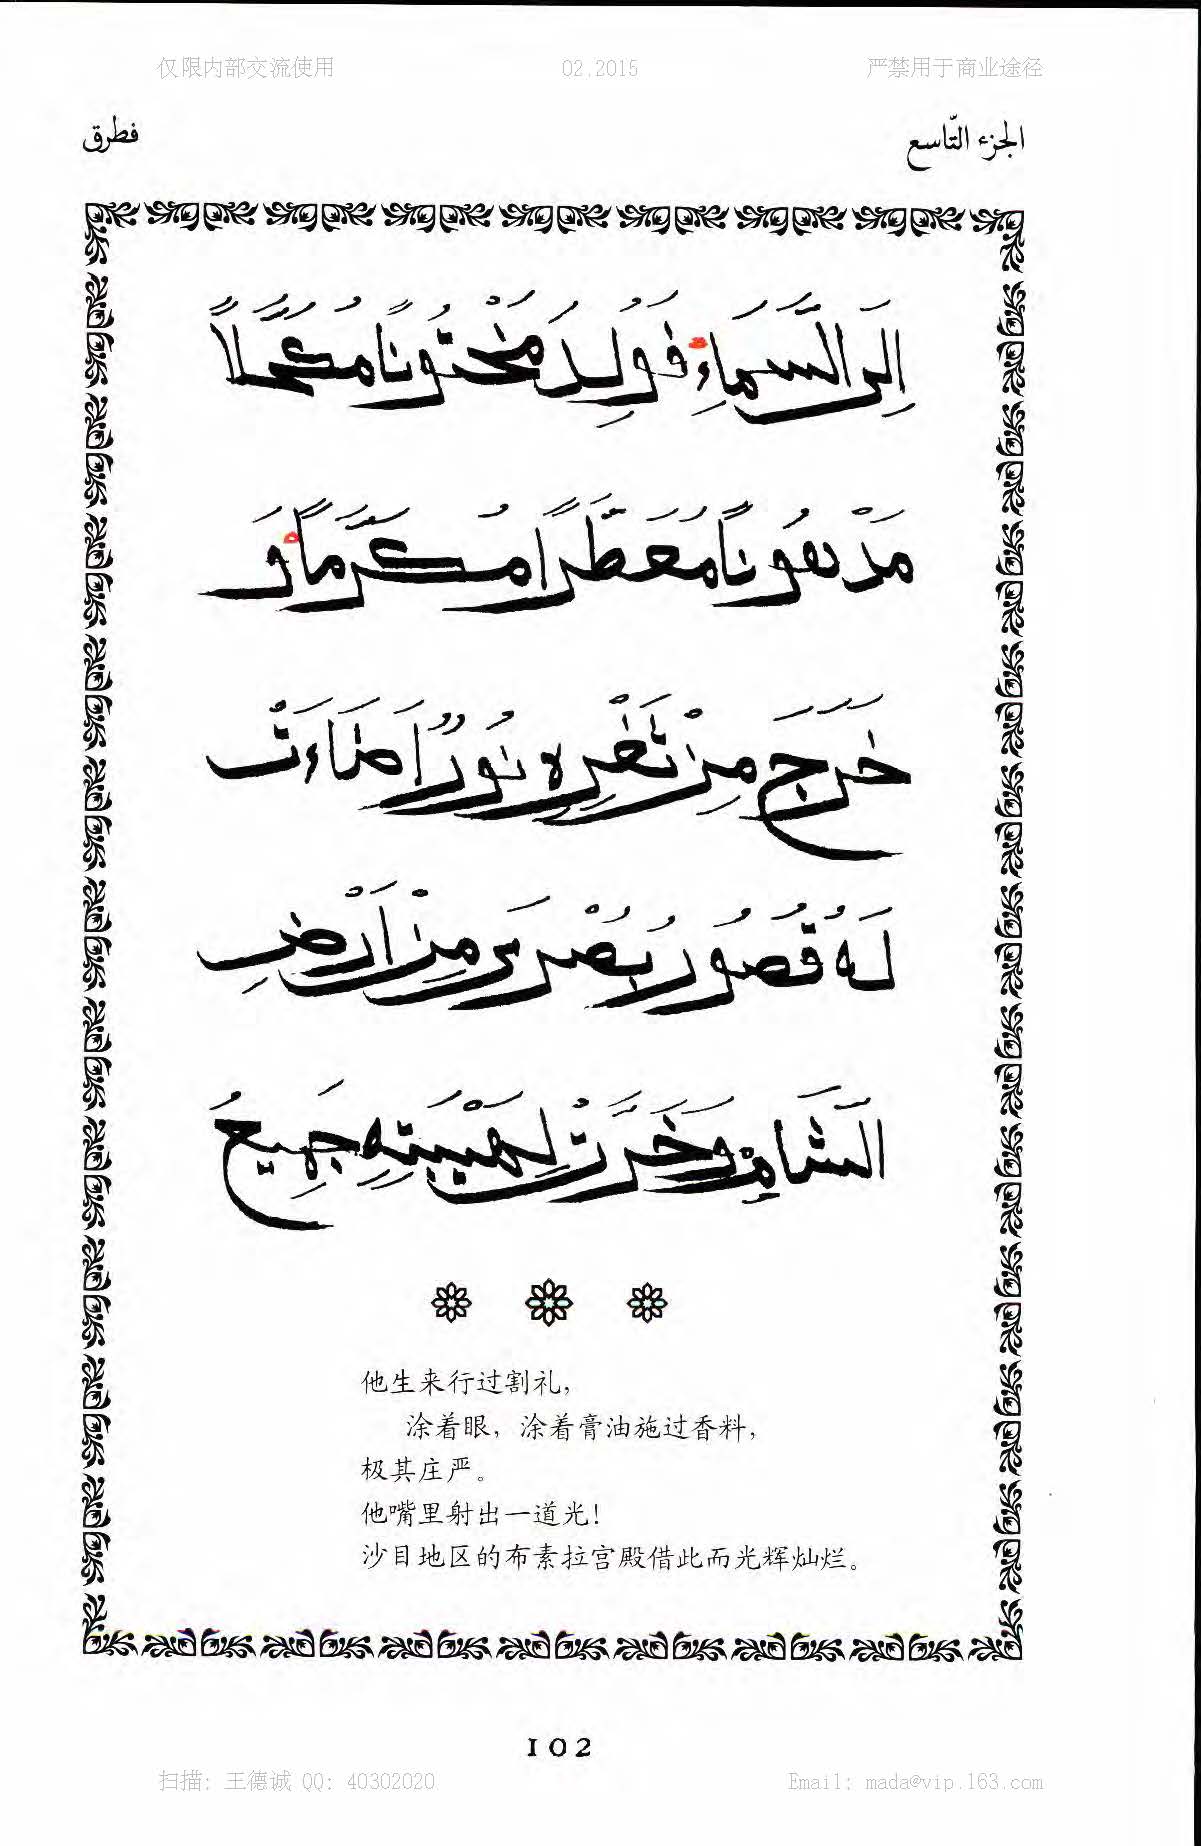 仅限内部交流使用 02.2015 严禁用于商业途径
الجزء التّاسع فطرق
اِلَى السَّمَاءِ فَوُلِدَ مَخْتُونًا مُكَحَّلاً
مَدْهُونًا مُعَطَّرًا مُكَرَّمًا وَ
خَرَجَ مِنْ ثَغْرِهِ نُورٌ اَضَاءَتْ
لَهُ قُصُورُ بُصْرَى مِنْ اَرْضِ
الشَّامِ وَخَرَّتْ لِهَيْبَتِهِ جَمِيعُ
他生来行过割礼，
涂着眼，涂着膏油施过香料，
极其庄严。
他嘴里射出一道光！
沙目地区的布素拉宫殿借此而光辉灿烂。
102
扫描: 王德诚 QQ: 40302020 Email: mada@vip.163.com